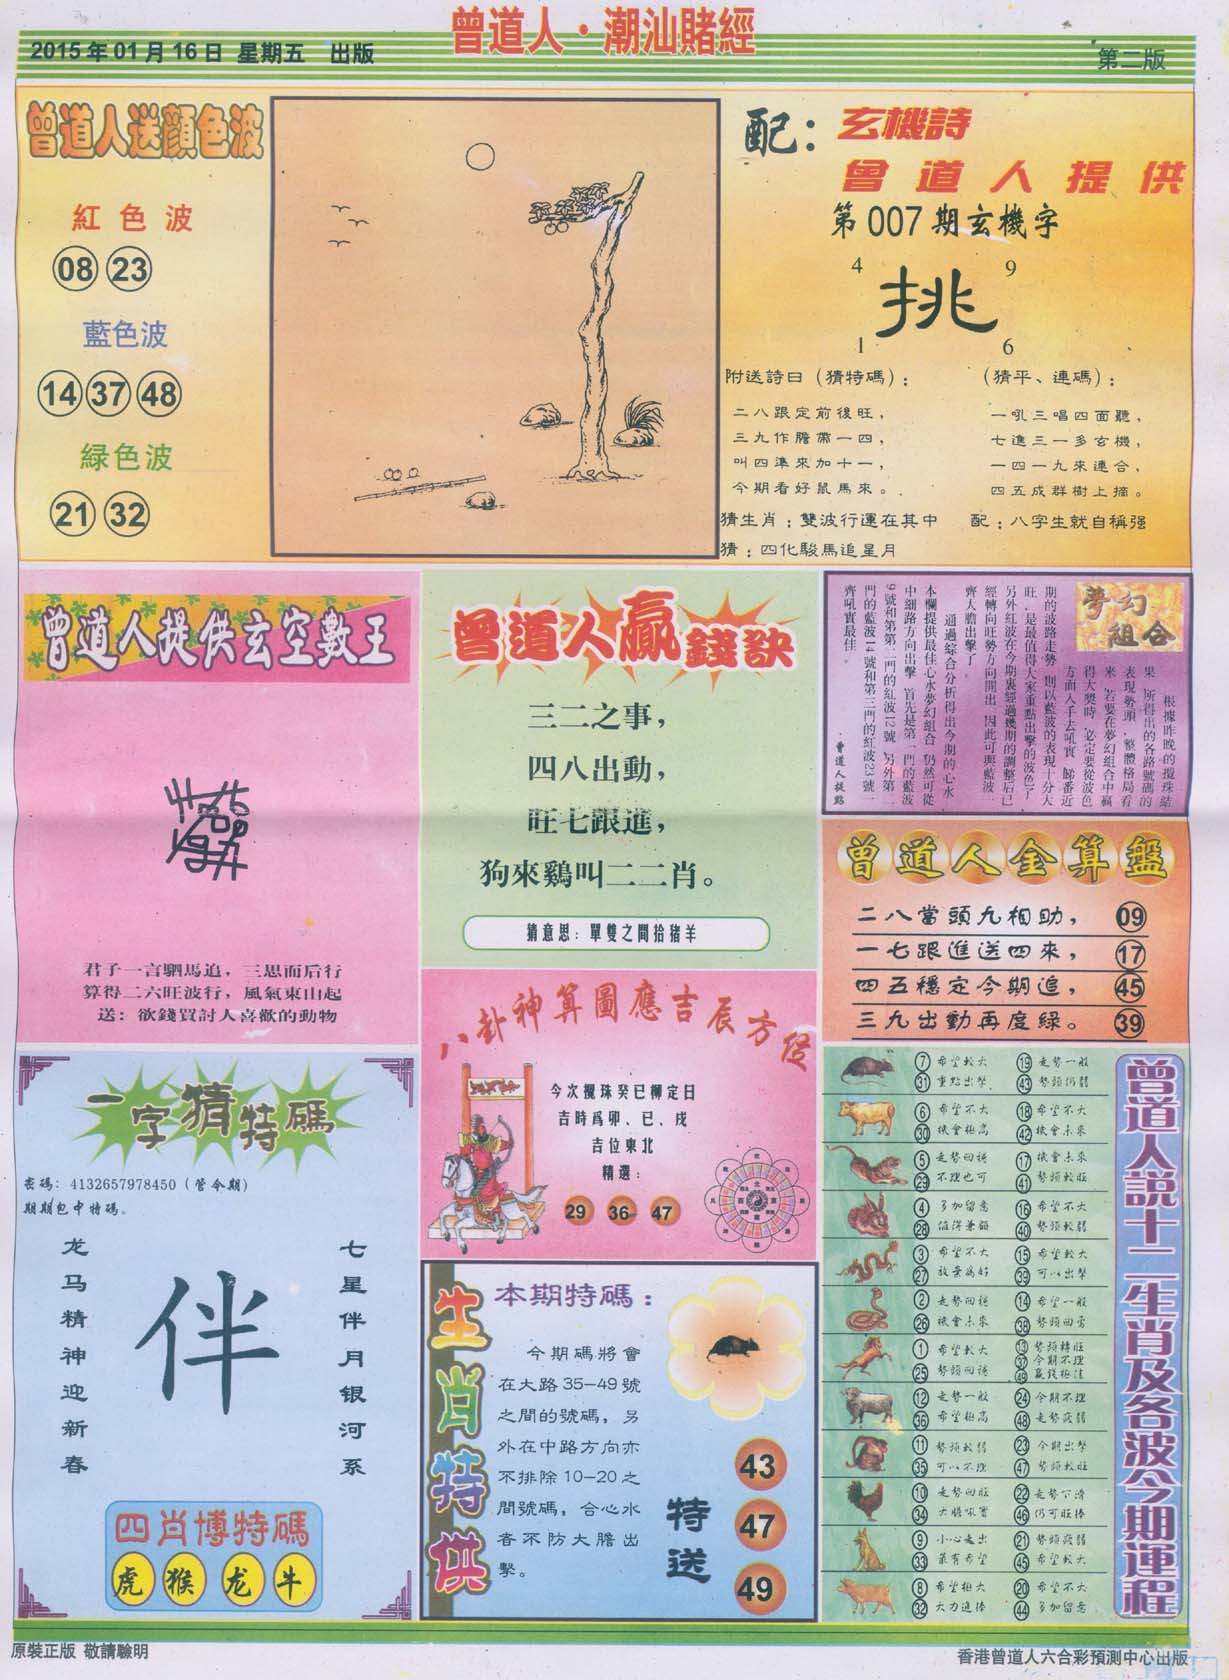 曾道人·潮汕賭經
2015年01月16日 星期五 出版
第二版
曾道人送顔色波
紅色波
08 23
藍色波
14 37 48
緑色波
21 32
配：玄機詩
曾道人提供
第007期玄機字
4 9
挑
1 6
附送詩曰（猜特碼）：
二八跟定前後旺，
三九作膽帶一四，
叫四準來加十一，
今期看好鼠馬來。
（猜平、連碼）：
一吼三唱四面聽，
七進三一多玄機，
一四一九來連合，
四五成群樹上摘。
猜生肖：雙波行運在其中
配：八字生就自稱强
猜：四化駿馬追星月
曾道人提供玄空數王
君子一言駟馬追，三思而后行
算得二六旺波行，風氣東山起
送：欲錢買討人喜歡的動物
曾道人贏錢訣
三二之事，
四八出動，
旺七跟進，
狗來鷄叫二二肖。
猜意思：單雙之間拾猪羊
夢幻組合
根據昨晚的攪珠結
果 所得出的各路號碼的
表現勢頭，整體格局看
來 若要在夢幻組合中贏
得大獎時 必定要從波色
方面入手去吼實 睇番近
期的波路走勢 則以藍波的表現十分大
旺，是最值得大家重點出擊的波色了
另外紅波在今期裏經過幾期的調整后已
經轉向旺勢方向開出 因此可與藍波一
齊大膽出擊了
通過綜合分析得出今期的心水
本欄提供最佳心水夢幻組合 仍然可從
中細路方向出擊 首先是第一門的藍波
9號和第第二門的紅波12號 另外第二
門的藍波14號和第三門的紅波23號一
齊吼實最佳。
曾道人提點
曾道人金算盤
二八當頭九相助， 09
一七跟進送四來， 17
四五穩定今期追， 45
三九出動再度緑。 39
八卦神算圖應吉辰方位
今次攪珠癸巳柳定日
吉時爲卯、巳、戌
吉位東北
精選：
29 36 47
一字猜特碼
密碼：4132657978450（管今期）
期期包中特碼。
龙马精神迎新春
伴
七星伴月银河系
四肖博特碼
虎 猴 龙 牛
生肖特供
本期特碼：
今期碼將會
在大路35—49號
之間的號碼，另
外在中路方向亦
不排除10—20之
間號碼，合心水
者不防大膽出
擊。
特送
43
47
49
曾道人說十二生肖及各波今期運程
7 希望較大 19 走勢一般
31 重點出擊 43 勢頭仍弱
6 希望不大 18 希望不大
30 機會極高 42 機會未來
5 走勢回穩 17 機會未來
29 不理也可 41 勢頭較旺
4 多加留意 16 希望不大
28 值得兼顧 40 勢頭較弱
3 希望不大 15 希望較大
27 放棄爲好 39 可以出擊
2 走勢回穩 14 希望一般
26 機會未來 38 勢頭回勇
1 希望較大 13 勢頭轉旺
25 勢頭回穩 37 今期不理
49 贏錢極佳
12 走勢一般 24 今期不理
36 希望極高 48 走勢疲弱
11 勢頭較弱 23 今期出擊
35 可以不理 47 勢頭較旺
10 走勢回旺 22 走勢下滑
34 大膽吼實 46 仍可旺捧
9 小心走出 21 勢頭疲弱
33 最有希望 45 希望較大
8 希望極大 20 希望不大
32 大力追捧 44 多加留意
原裝正版 敬請驗明
香港曾道人六合彩預測中心出版